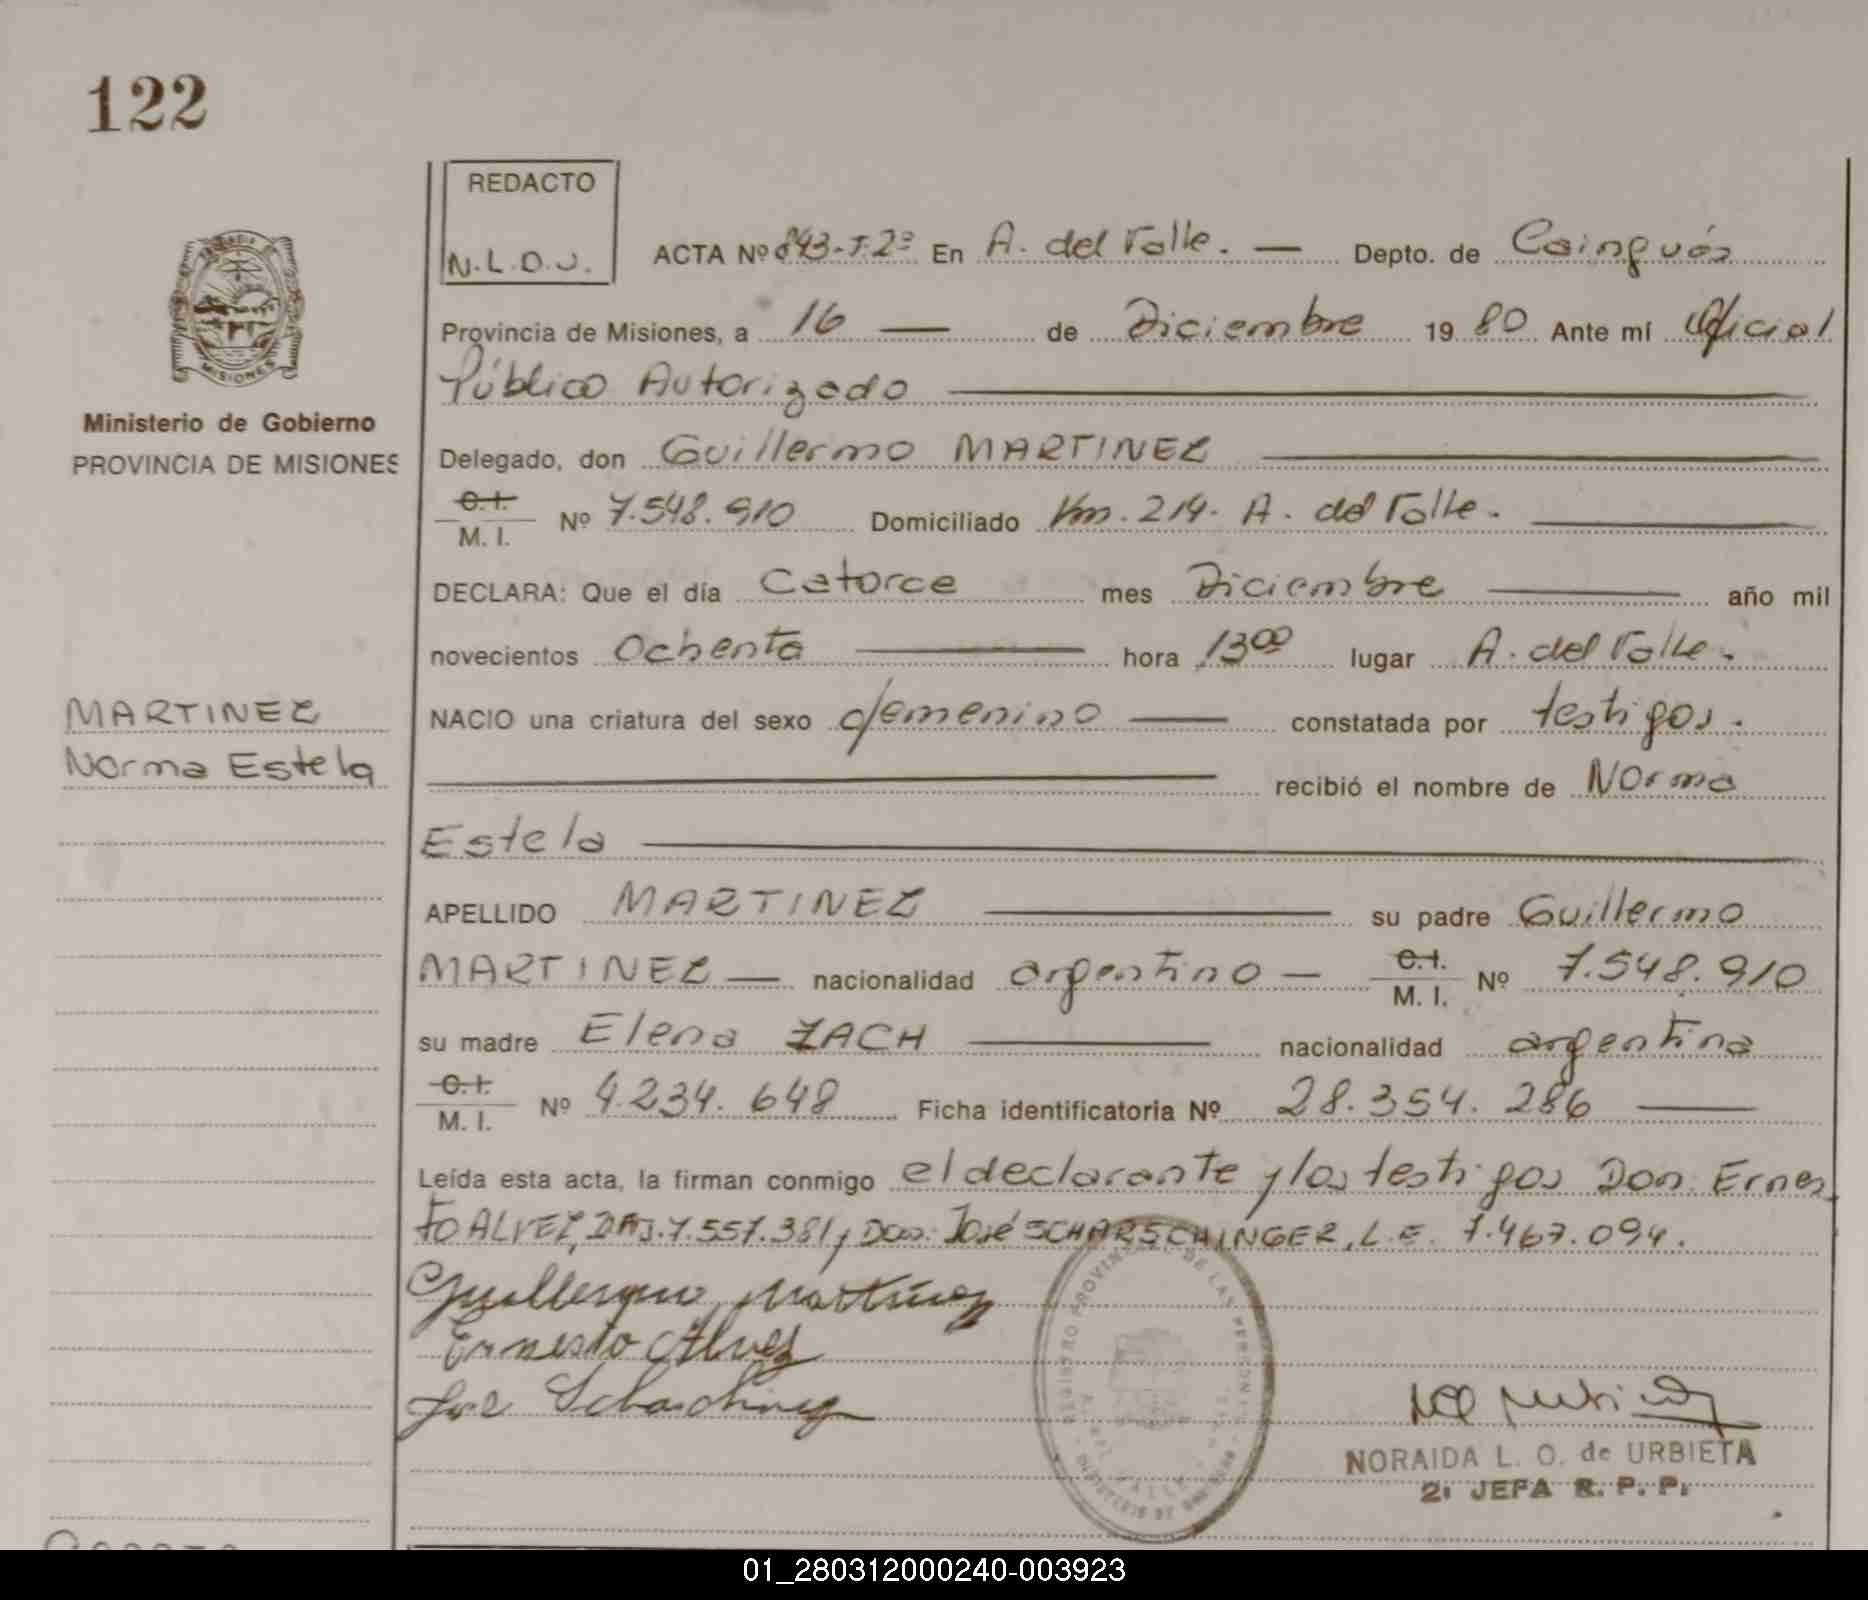 122
REDACTO
N.L.O.U.
ACTA Nº 843-T.2º En A. del Valle. — Depto. de Cainguás
MISIONES
Provincia de Misiones, a 16 — de Diciembre 1980 Ante mí Oficial
Público Autorizado
Ministerio de Gobierno
PROVINCIA DE MISIONES
Delegado, don Guillermo MARTINEZ
C.I.
M. I. Nº 7.548.910 Domiciliado Km. 214. A. del Valle.
DECLARA: Que el día Catorce mes Diciembre — año mil
novecientos Ochenta — hora 13⁰⁰ lugar A. del Valle.
MARTINEZ
Norma Estela
NACIO una criatura del sexo femenino — constatada por testigos.
recibió el nombre de Norma
Estela
APELLIDO MARTINEZ — su padre Guillermo
MARTINEZ — nacionalidad argentino — C.I. M. I. Nº 7.548.910
su madre Elena ZACH — nacionalidad argentina
C.I.
M. I. Nº 4.234.648 Ficha identificatoria Nº 28.354.286 —
Leída esta acta, la firman conmigo el declarante y los testigos Don: Ernes
to ALVEZ, 7.557.381 y Don: José SCHARSCHINGER, L.E. 7.467.094.
Guillermo Martinez
Ernesto Alvez
José
REGISTRO PROVINCIAL DE LAS PERSONAS
NORAIDA L. O. de URBIETA
2: JEFA R. P. P.
01_280312000240-003923